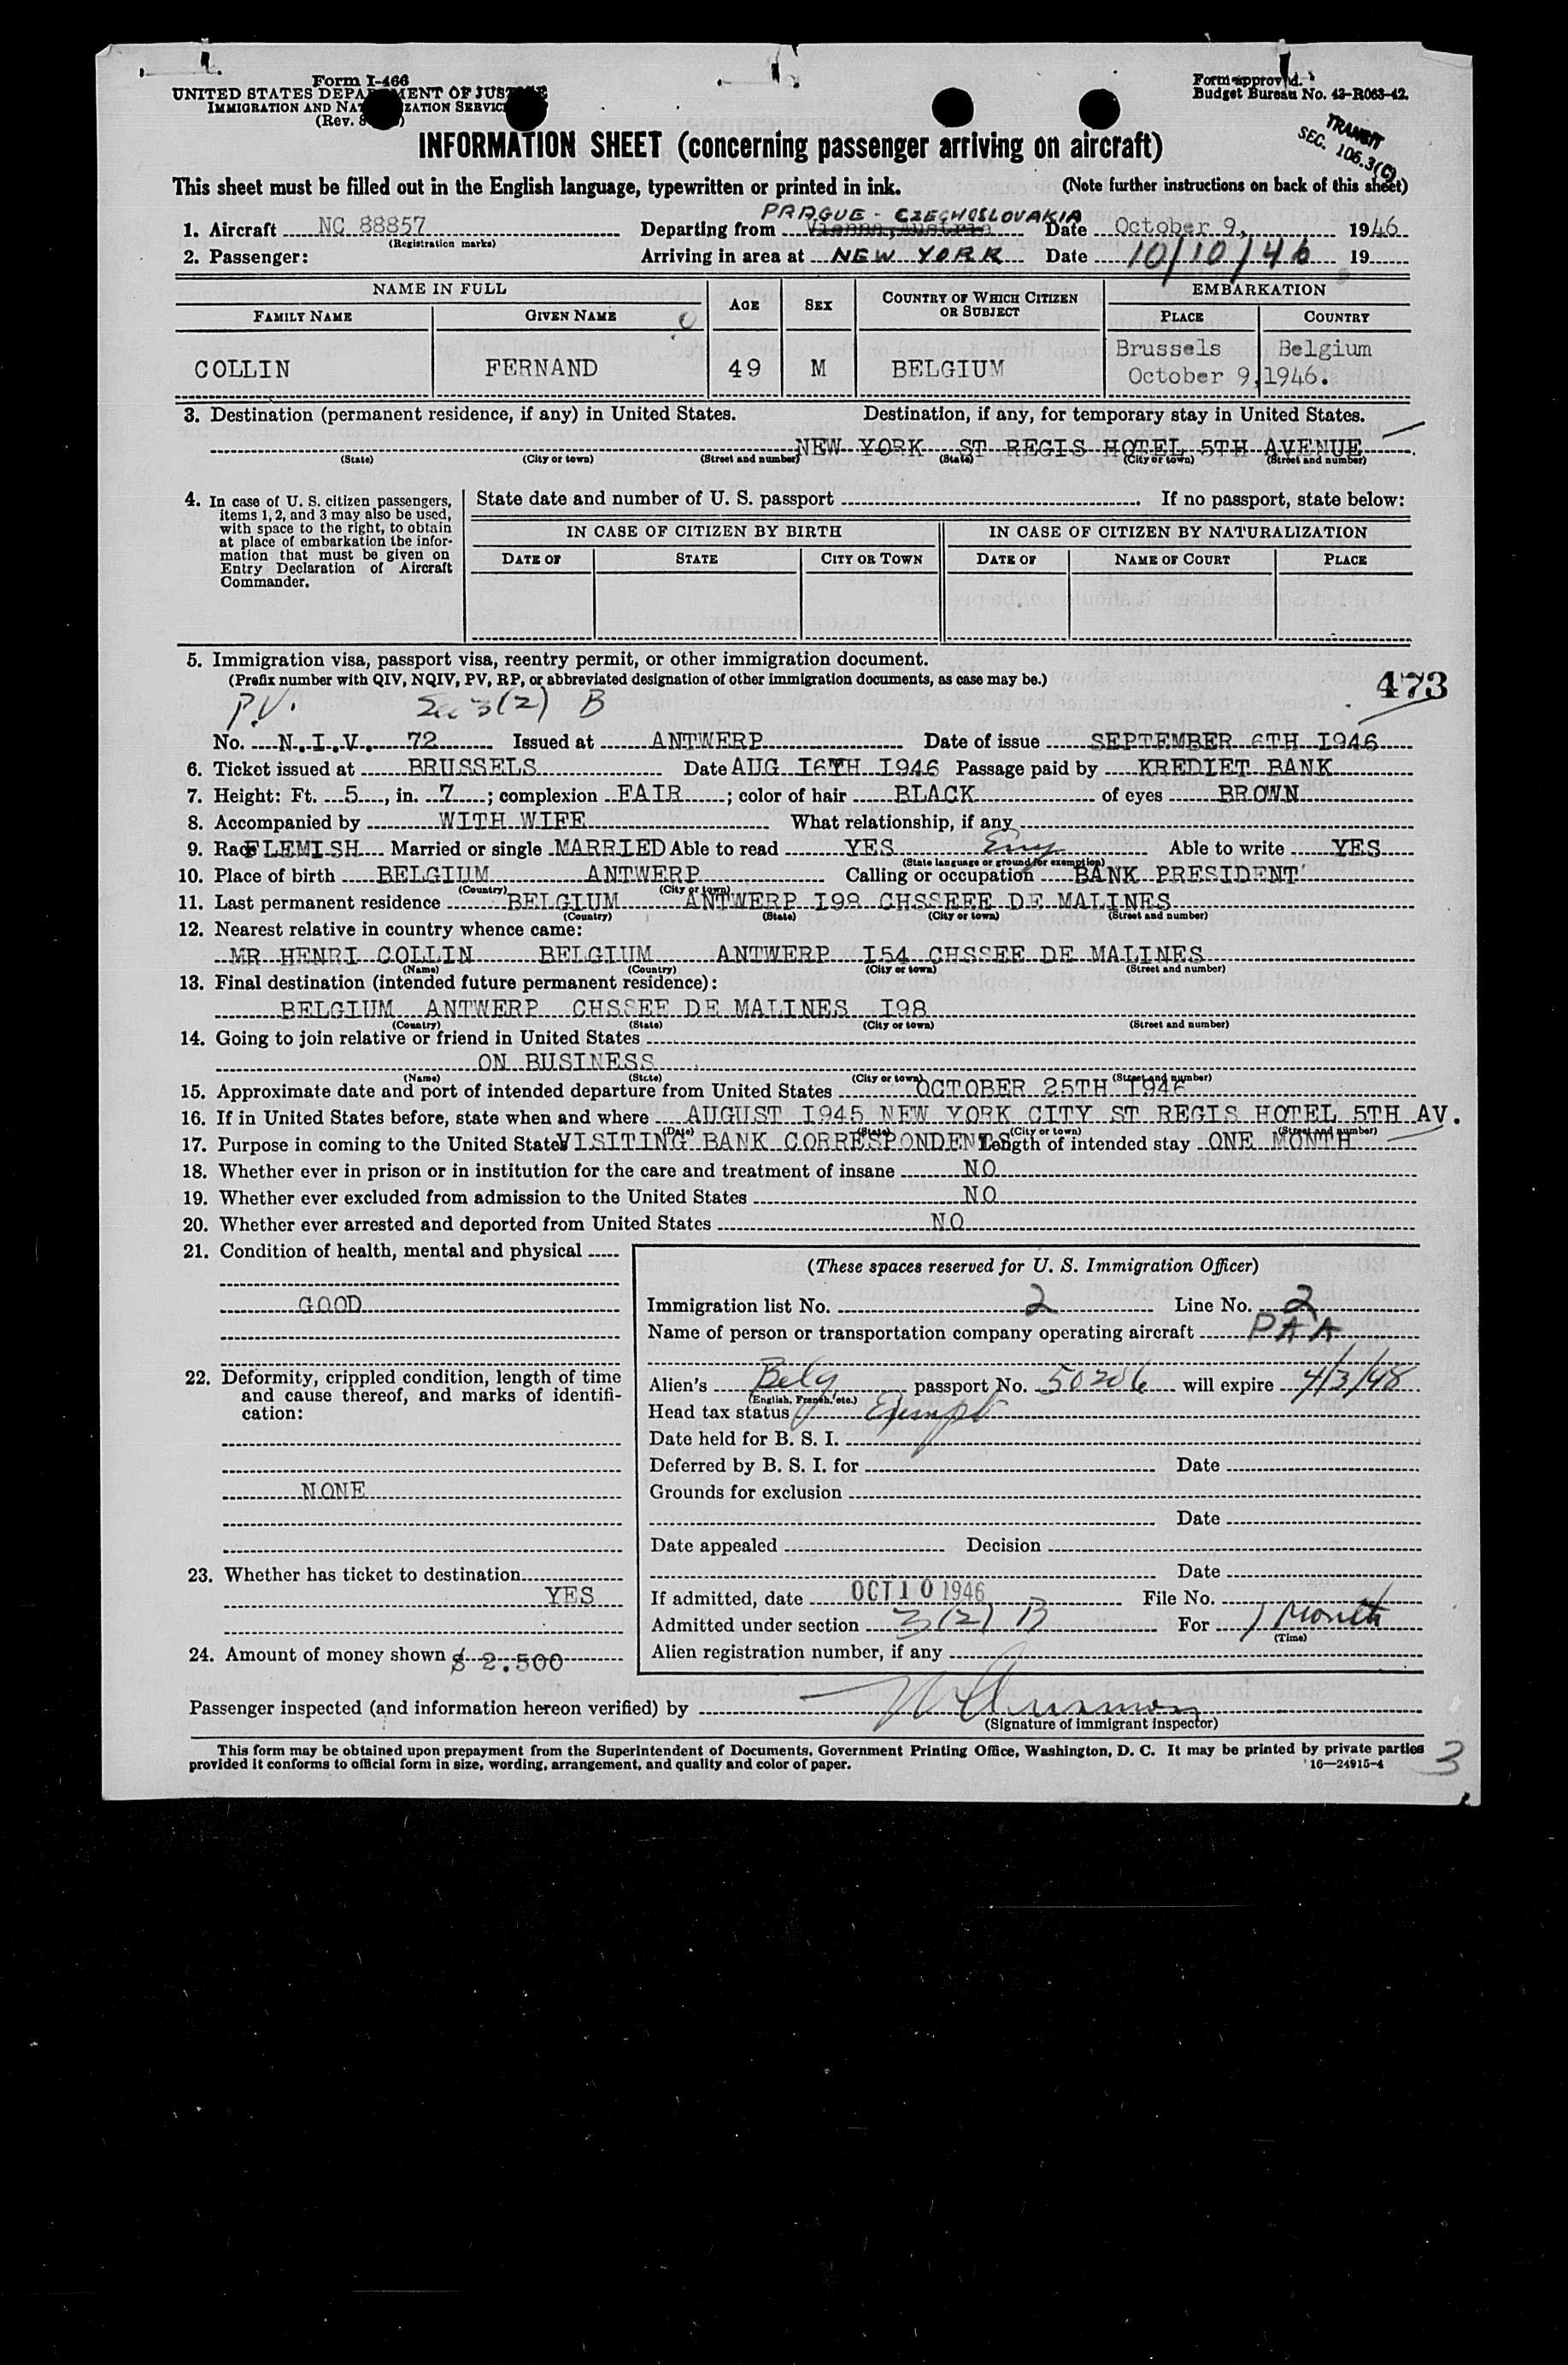 Form I-466
UNITED STATES DEPARTMENT OF JUSTICE
IMMIGRATION AND NATURALIZATION SERVICE
(Rev. 8
Form approved.
Budget Bureau No. 43-R063-42.
TRANSIT
SEC. 106.3(C)
INFORMATION SHEET (concerning passenger arriving on aircraft)
This sheet must be filled out in the English language, typewritten or printed in ink. (Note further instructions on back of this sheet)
PRAGUE - CZECHOSLOVAKIA
1. Aircraft NC 88857 Departing from Vienna, Austria Date October 9, 1946
(Registration marks)
2. Passenger: Arriving in area at NEW YORK Date 10/10/46 19
NAME IN FULL AGE SEX COUNTRY OF WHICH CITIZEN OR SUBJECT EMBARKATION
FAMILY NAME GIVEN NAME PLACE COUNTRY
COLLIN FERNAND 49 M BELGIUM Brussels Belgium
October 9, 1946.
3. Destination (permanent residence, if any) in United States. Destination, if any, for temporary stay in United States.
NEW YORK ST REGIS HOTEL 5TH AVENUE
(State) (City or town) (Street and number) (State) (City or town) (Street and number)
4. In case of U. S. citizen passengers, items 1, 2, and 3 may also be used, with space to the right, to obtain at place of embarkation the information that must be given on Entry Declaration of Aircraft Commander.
State date and number of U. S. passport If no passport, state below:
IN CASE OF CITIZEN BY BIRTH IN CASE OF CITIZEN BY NATURALIZATION
DATE OF STATE CITY OR TOWN DATE OF NAME OF COURT PLACE
5. Immigration visa, passport visa, reentry permit, or other immigration document.
(Prefix number with QIV, NQIV, PV, RP, or abbreviated designation of other immigration documents, as case may be.) 473
P.V. Sec 3(2) B
No. N.I.V. 72 Issued at ANTWERP Date of issue SEPTEMBER 6TH I946
6. Ticket issued at BRUSSELS Date AUG I6TH I946 Passage paid by KREDIET BANK
7. Height: Ft. 5, in. 7; complexion FAIR; color of hair BLACK of eyes BROWN
8. Accompanied by WITH WIFE What relationship, if any
9. Race FLEMISH Married or single MARRIED Able to read YES Eng Able to write YES
(State language or ground for exemption)
10. Place of birth BELGIUM ANTWERP Calling or occupation BANK PRESIDENT
(Country) (City or town)
11. Last permanent residence BELGIUM ANTWERP I98 CHSSEEE DE MALINES
(Country) (State) (City or town) (Street and number)
12. Nearest relative in country whence came:
MR HENRI COLLIN BELGIUM ANTWERP I54 CHSSEE DE MALINES
(Name) (Country) (City or town) (Street and number)
13. Final destination (intended future permanent residence):
BELGIUM ANTWERP CHSSEE DE MALINES I98
(Country) (State) (City or town) (Street and number)
14. Going to join relative or friend in United States
ON BUSINESS
(Name) (State) (City or town) (Street and number)
15. Approximate date and port of intended departure from United States OCTOBER 25TH I946
16. If in United States before, state when and where AUGUST I945 NEW YORK CITY ST REGIS HOTEL 5TH AV.
(Date) (State) (City or town) (Street and number)
17. Purpose in coming to the United States VISITING BANK CORRESPONDENTS Length of intended stay ONE MONTH
18. Whether ever in prison or in institution for the care and treatment of insane NO
19. Whether ever excluded from admission to the United States NO
20. Whether ever arrested and deported from United States NO
21. Condition of health, mental and physical
GOOD
22. Deformity, crippled condition, length of time and cause thereof, and marks of identification:
NONE
23. Whether has ticket to destination
YES
24. Amount of money shown $ 2.500
(These spaces reserved for U. S. Immigration Officer)
Immigration list No. 2 Line No. 2
Name of person or transportation company operating aircraft PAA
Alien's Belg passport No. 50206 will expire 4/3/48
(English, French, etc.)
Head tax status Exempt
Date held for B. S. I.
Deferred by B. S. I. for Date
Grounds for exclusion
Date
Date appealed Decision
Date
If admitted, date OCT 10 1946 File No.
Admitted under section 3(2) B For 1 Month
(Time)
Alien registration number, if any
Passenger inspected (and information hereon verified) by
(Signature of immigrant inspector)
This form may be obtained upon prepayment from the Superintendent of Documents, Government Printing Office, Washington, D. C. It may be printed by private parties
provided it conforms to official form in size, wording, arrangement, and quality and color of paper. 16—24915-4
3